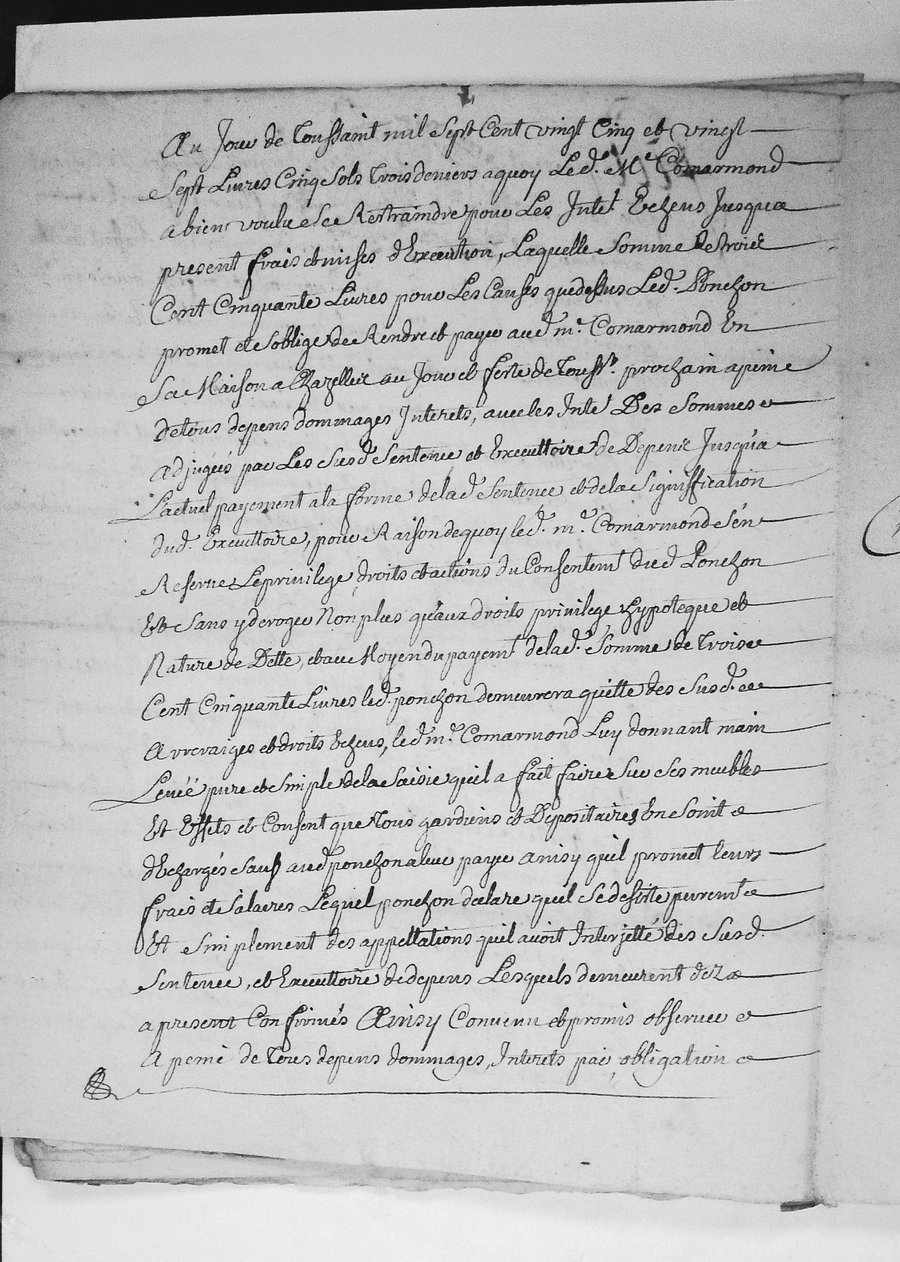 Au Jour de Toussaint mil sept Cent vingt Cinq et vingt
sept Livres Cinq sols Trois deniers a quoy Led. Mr. Comarmond
a bien voulu se Restraindre pour Les Intet. Echeus Jusqua
present frais et mises d'Execution, Laquelle somme de trois
Cent Cinquante Livres pour Les Causes que dessus Led. Ponchon
promet et soblige de Rendre et payer aud. mr. Comarmond En
sa Maison a Chazelles au Jour et feste de Toussts. prochain apeine
de tous depens dommages Interets, avec les Intes. Des sommes
adjugées par Les susd. sentence et Executtoire de Depens Jusqua
Lactuel payement a la forme de lad. sentence et de la signiffication
dud. Executtoire, pour Raison de quoy led. mr. Comarmond sén
Reserve Le privilege, droits et actions du Consentemt. dud. Ponchon
Et sans y deroger Non plus quaux droits privilege hypoteque et
Nature de Dette, et au Moyen du payemt. de lad. somme de Trois
Cent Cinquante Livres led. ponchon demeurera quitte des susd.
Arrerages et droits Echeus, led. mr. Comarmond Luy donnant main
Levée pure et simple de la saisie quil a fait faire sur ses meubles
Et Effets et Consent que Nous gardiens et Depositaires En soint
dEchargés sauf aud. ponchon a leur payer ainsy quil promet leurs
frais et salaires Lequel ponchon declare quil se desiste puremt.
Et simplement des appellations quil avoit Interjetté des susd.
sentence, et Executtoire de depens Lesquels demeurent déz a
apresent Confirmés Ainsy Convenu et promis observer
A peine de Tous depens dommages, Interets par obligation